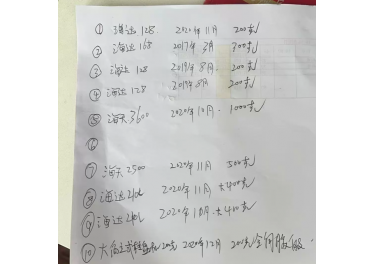 ① 海达128 2020年11月 200克
② 海达168 2017年3月 300克
③ 海达128 2019年8月 200克
④ 海达128 2019年8月 200克
⑤ 海天3600 2020年10月 1000克
⑥
⑦ 海天2500 2020年11月 500克
⑧ 海达 2020年11月 大400克
⑨ 海达 2020年 大400克
⑩ 大 立式 2020年12月 200克